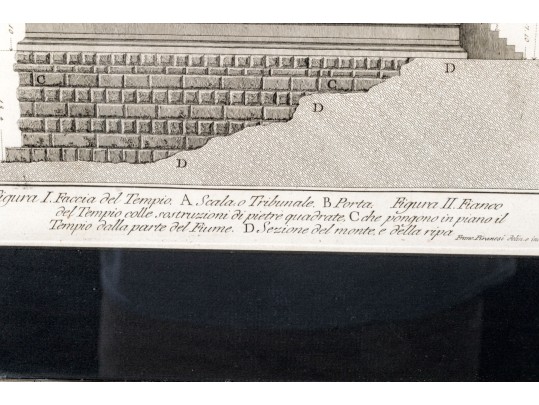 D
C
C
D
D
Figura I. Faccia del Tempio. A Scala, o Tribunale. B Porta. Figura II. Fianco
del Tempio colle sostruzioni di pietre quadrate, C che pongono in piano il
Tempio dalla parte del Fiume. D Sezione del monte, e della ripa
Franc. Piranesi